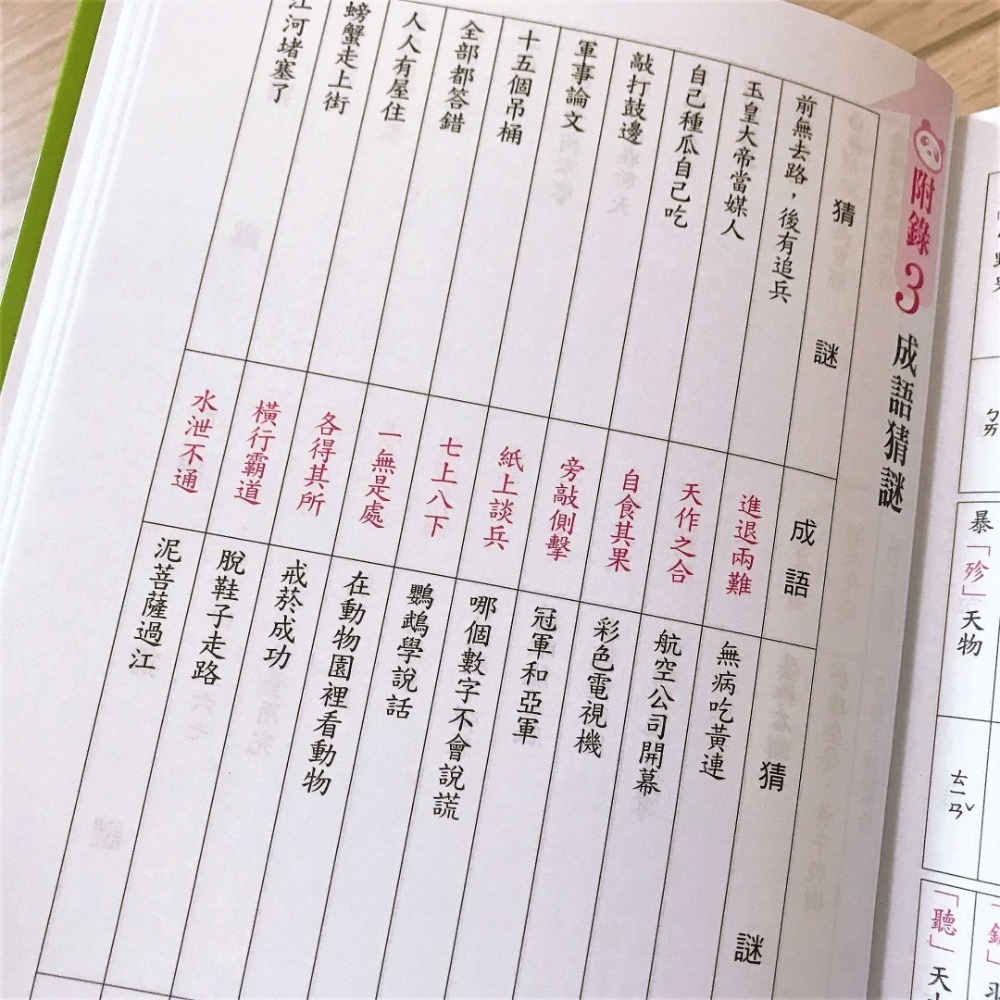 暴「殄」天物
ㄊㄧㄢˇ
「聽」天
附錄3 成語猜謎
猜謎
前無去路，後有追兵
玉皇大帝當媒人
自己種瓜自己吃
敲打鼓邊
軍事論文
十五個吊桶
全部都答錯
人人有屋住
螃蟹走上街
江河堵塞了
成語
進退兩難
天作之合
自食其果
旁敲側擊
紙上談兵
七上八下
一無是處
各得其所
橫行霸道
水泄不通
猜謎
無病吃黃連
航空公司開幕
彩色電視機
冠軍和亞軍
哪個數字不會說謊
鸚鵡學說話
在動物園裡看動物
戒菸成功
脫鞋子走路
泥菩薩過江